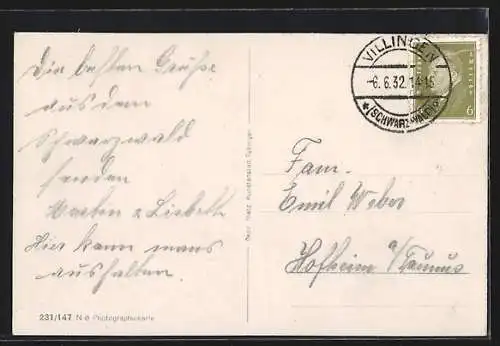 Die besten Grüsse
aus dem
Schwarzwald
senden
Martin u Lisbeth
Hier kann mans
aushalten.
231/147 N Photographiekarte
Gebr. Metz, Kunstanstalt, Tübingen
VILLINGEN
-6.6.32.14-15
(SCHWARZWALD)
6
Fam.
Emil Weber
Hofheim a/Taunus